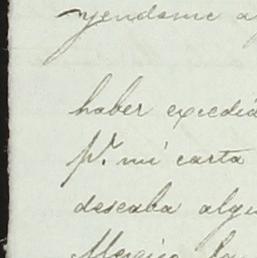 yendome a
haber excedid
pr. mi carta
deseaba algu